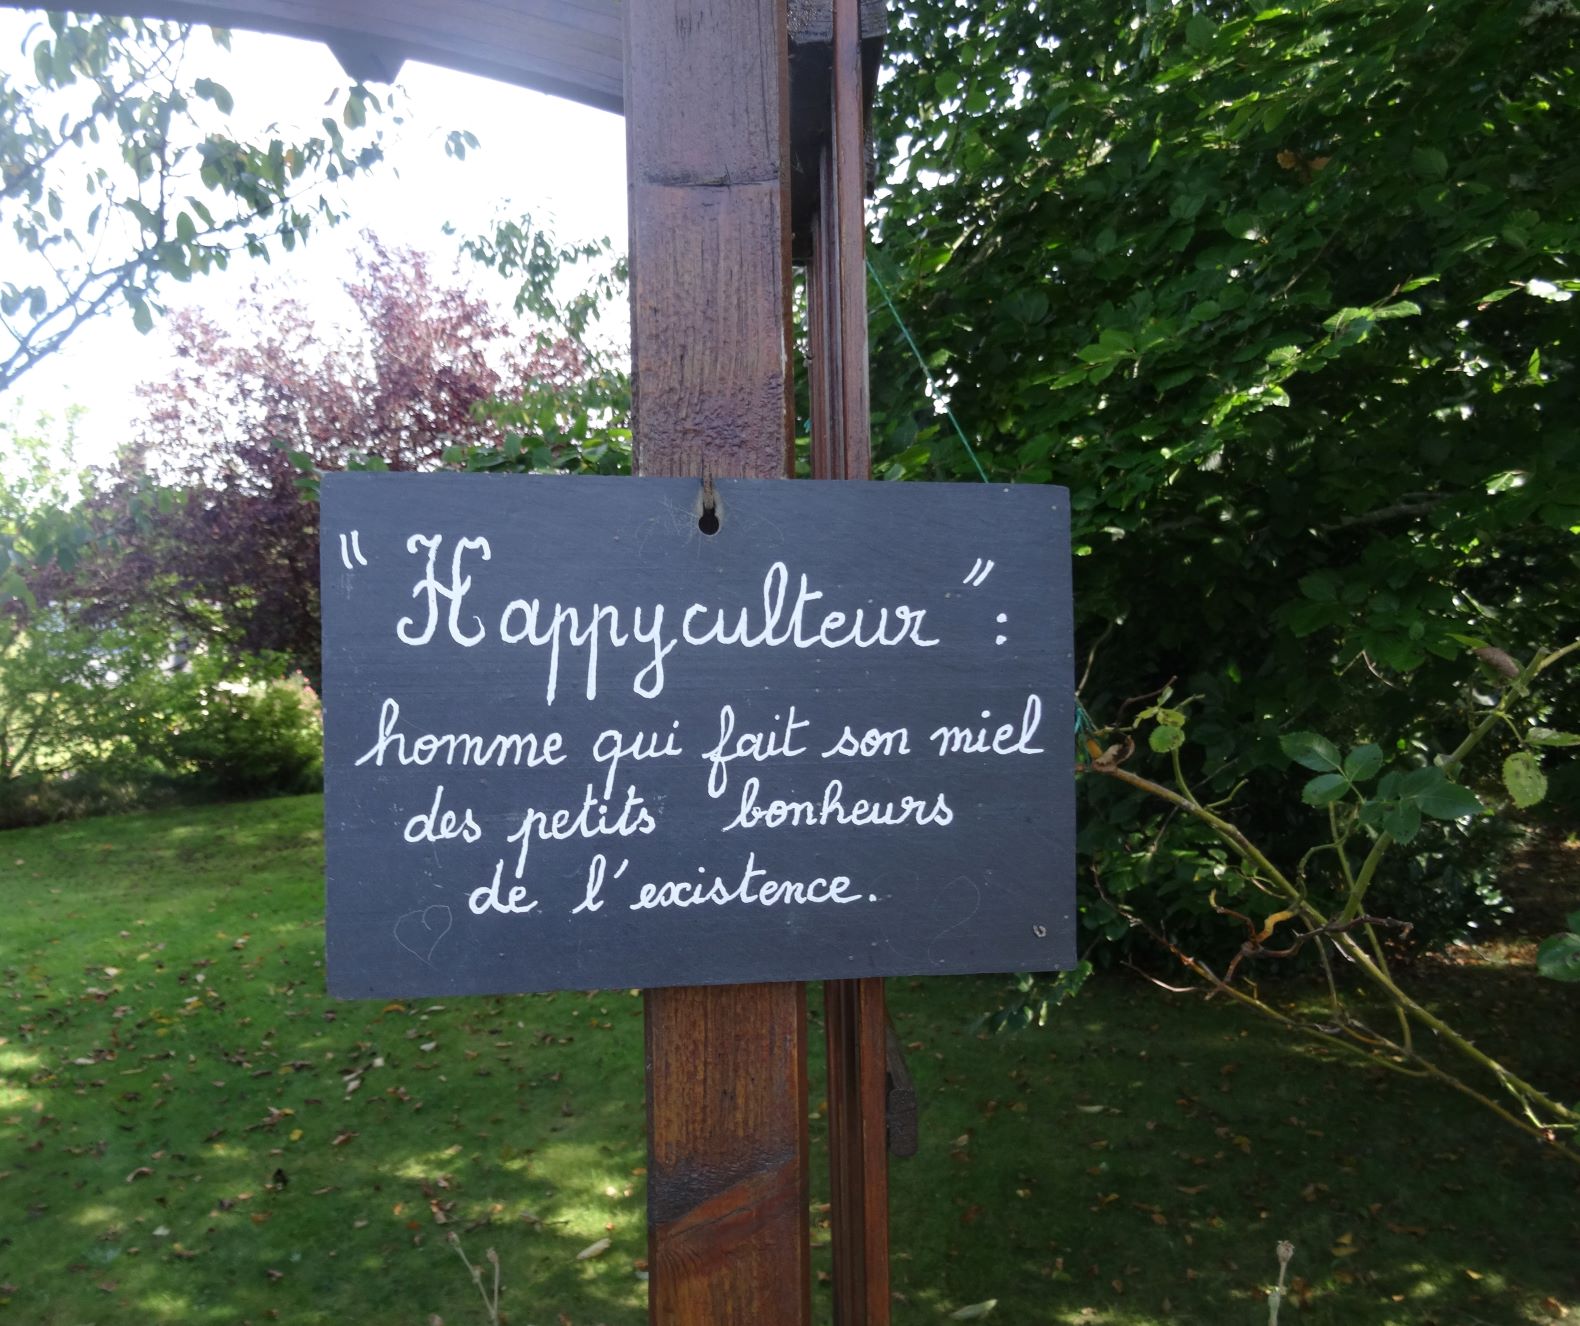 "Happyculteur":
homme qui fait son miel
des petits bonheurs
de l'existence.